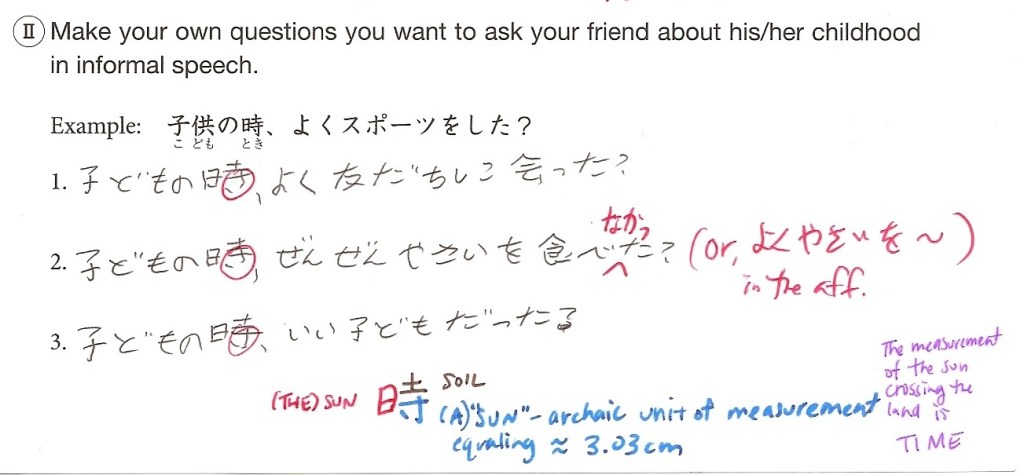 II Make your own questions you want to ask your friend about his/her childhood
in informal speech.
Example: 子供の時、よくスポーツをした？
こ ども とき
1. 子どもの時、よく友だちに会った？
なかっ
2. 子どもの時、ぜんぜんやさいを食べた？ (or, よくやさいを〜)
in the aff.
3. 子どもの時、いい子どもだったる
(THE) SUN 時 SOIL
(A) "SUN" - archaic unit of measurement
equaling ≈ 3.03cm
The measurement
of the sun
crossing the
land is
TIME